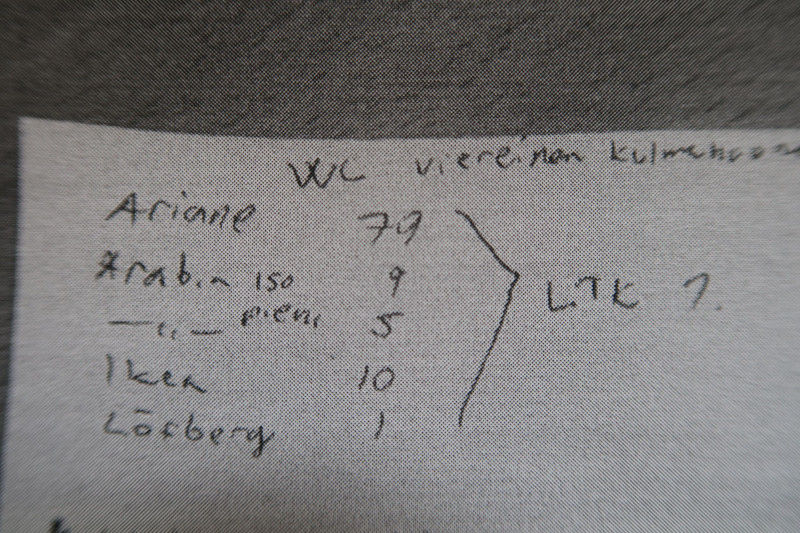 WC viereinen kulmahuone
Ariane 79
Arabin iso 9
—"— pieni 5
Ikea 10
Löfberg 1
LTK 7.